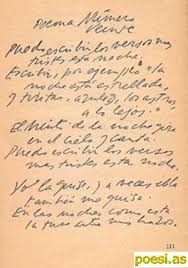 Poema Número
Veinte
Puedo escribir los versos mas
tristes esta noche.
Escribir, por ejemplo: "la
noche está estrellada,
y tiritan, azules, los astros,
a lo lejos."
El viento de la noche gira
en el cielo y canta.
Puedo escribir los versos
mas tristes esta noche.
Yo la quise, y a veces ella
también me quiso.
En las noches como esta
la tuve entre mis brazos.
poesi.as